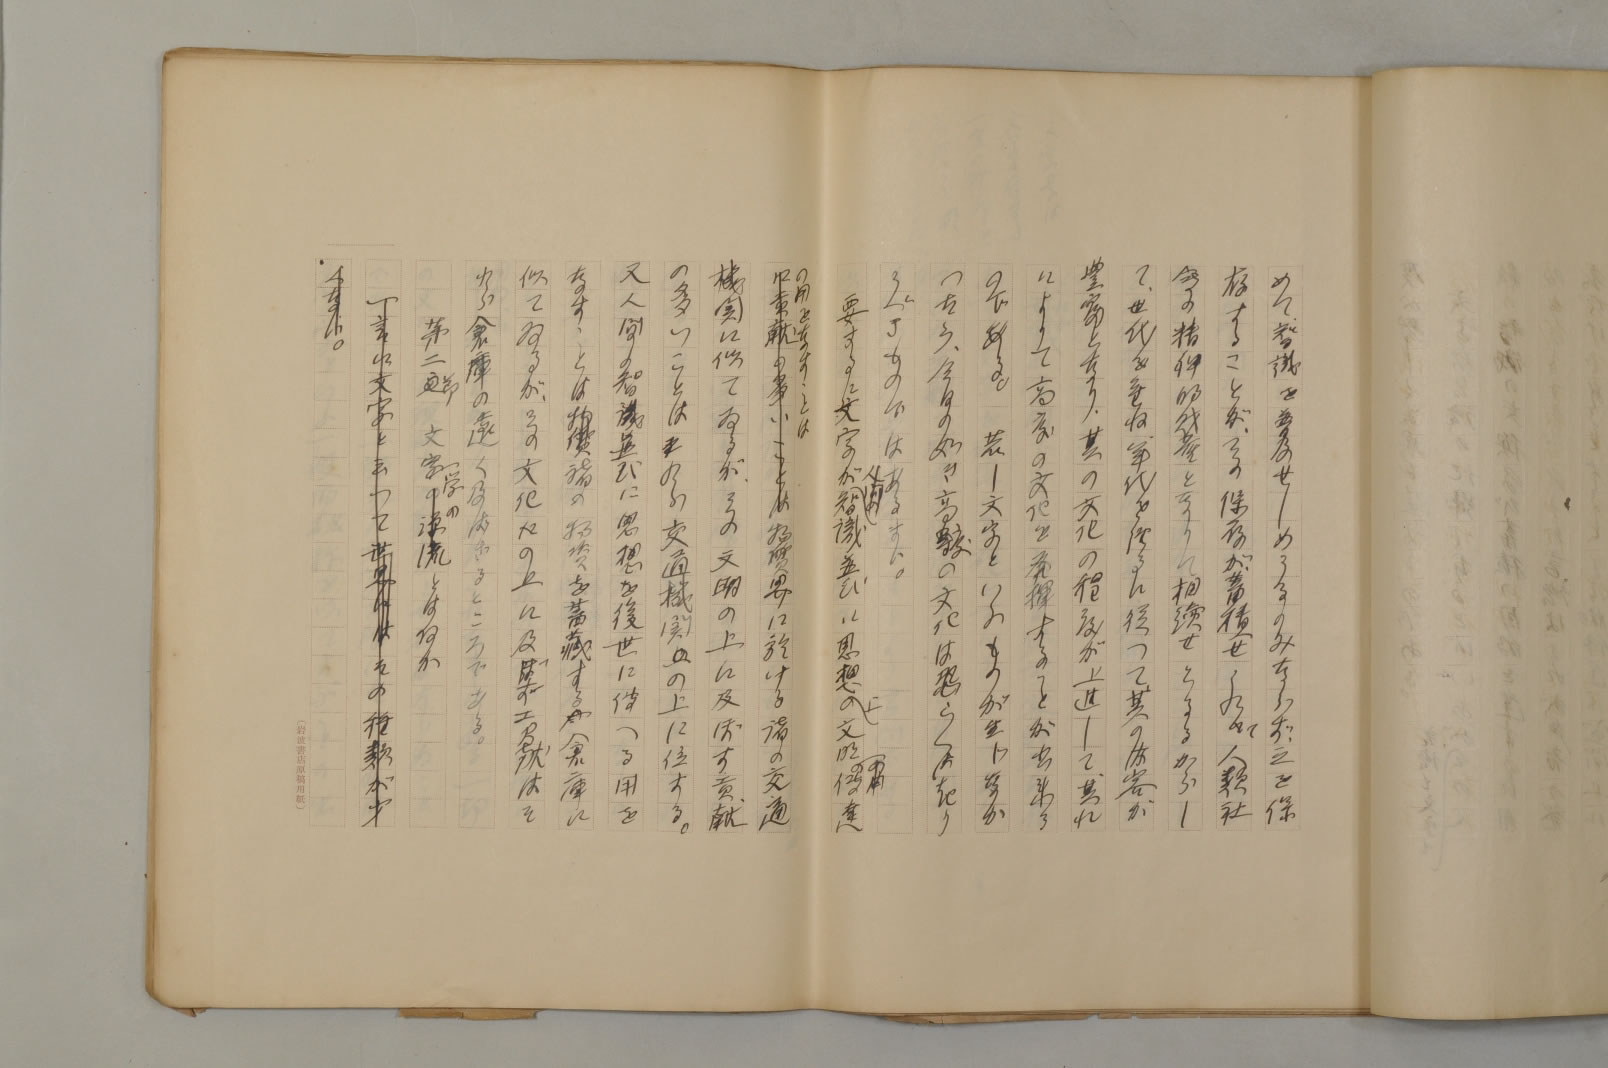 めて、智識を普及せしめうるのみならず、之を保
存することが、その保存が蓄積せられて人類社
会の精神的財産となりて相続せらるるからし
て、世代を重ね年代を経るに従つて其の内容が
豊富となり、其の文化の程度が上進して其れ
によりて高度の文化を発揮することが出来る
のである。若し文字といふものが生れなか
つたら、今日の如き高級の文化は恐らくは起り
うべきものではあるまい。
要するに文字が人間の智識並びに思想の上に文明の傳達
の用をなすことは
物質界に於ける諸の交通
機関に似てゐるが、その文明の上に及ぼす貢献
の多いことは かかる交通機関の上に位する。
又人間の智識並びに思想を後世に傳へる用を
なすことは物質諸の物資を蓄蔵する倉庫に
似てゐるが、その文化の上に及ぼす工献はそ
れら倉庫の遠く及ばざるところである。
第二節 文字学の源流とは何か
一言に文字といつて世界にはその種類が少
くない。
(岩波書店原稿用紙)